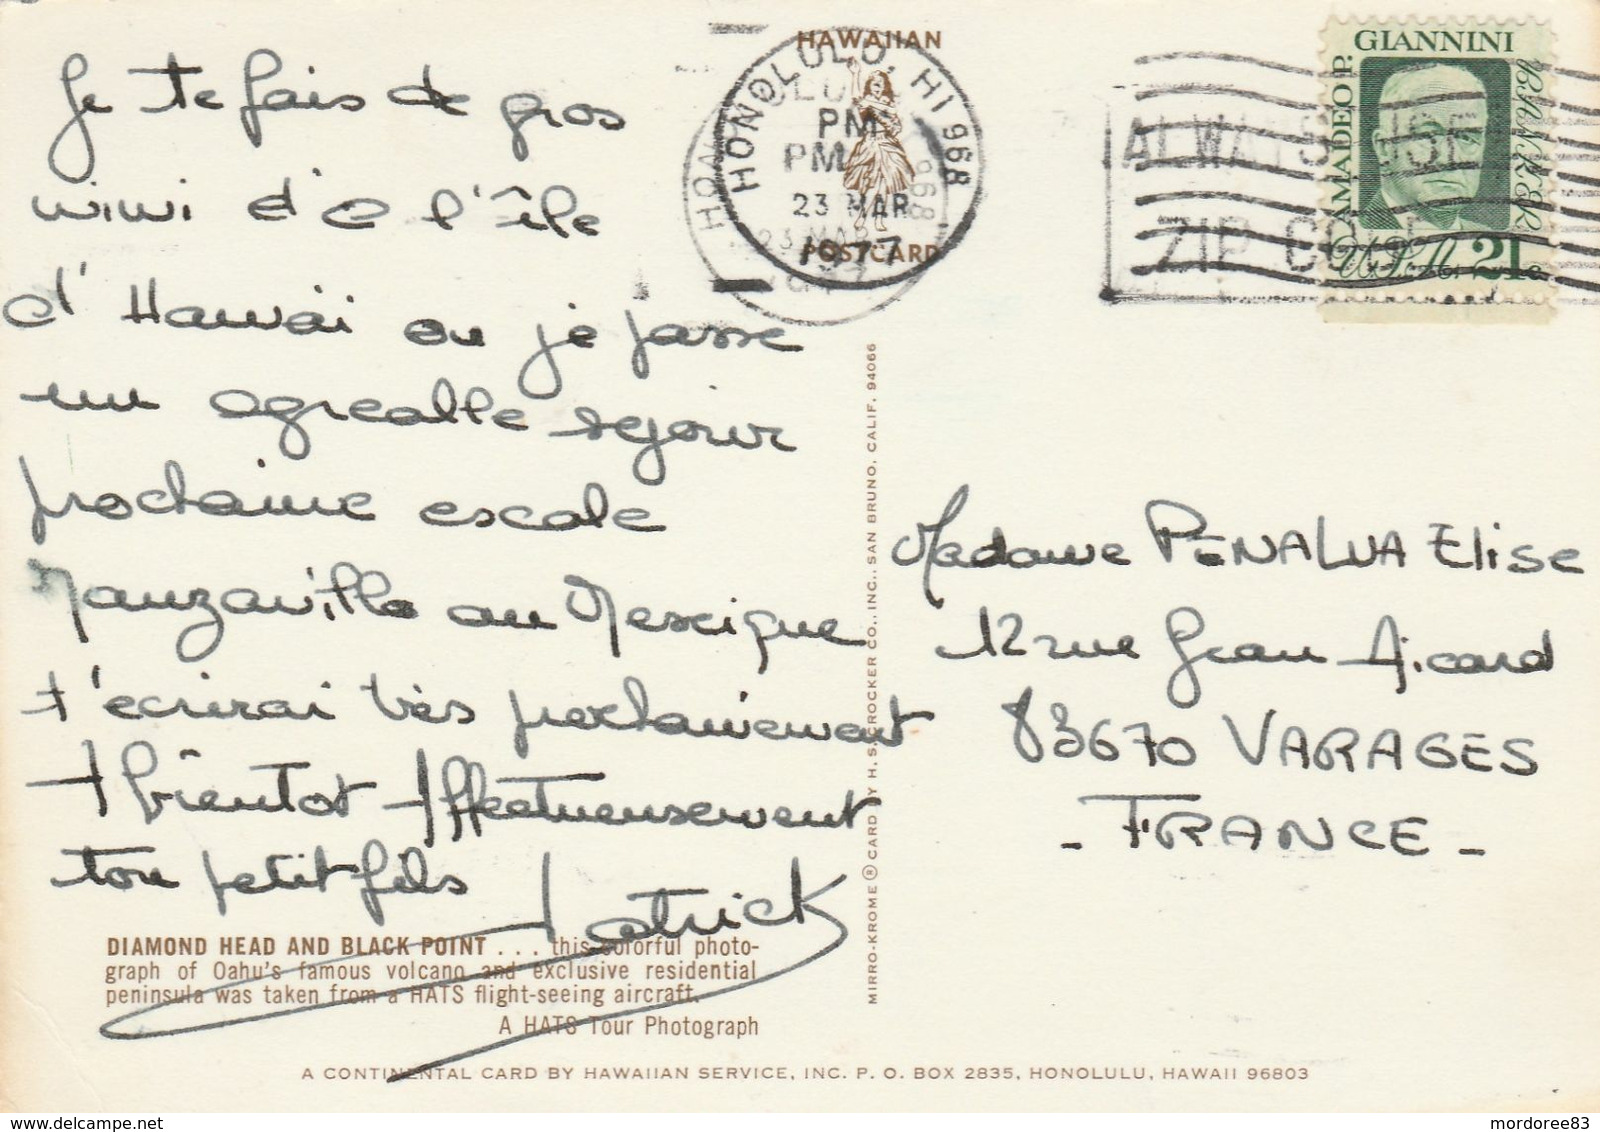 Je te fais de gros
wiwi d'e l'île
d'Hawaï ou je passe
un agreable sejour
prochaine escale
Manzaville au Mexique
t'écrirai très prochainement
A bientot Affectueusement
ton petit fils Patrick
DIAMOND HEAD AND BLACK POINT . . . this colorful photo-
graph of Oahu's famous volcano and exclusive residential
peninsula was taken from a HATS flight-seeing aircraft.
A HATS Tour Photograph
A CONTINENTAL CARD BY HAWAIIAN SERVICE, INC. P. O. BOX 2835, HONOLULU, HAWAII 96803
MIRRO-KROME ® CARD BY H. S. CROCKER CO., INC., SAN BRUNO, CALIF. 94066
HAWAIIAN
POSTCARD
HONOLULU, HI 968
PM
23 MAR
1977
ALWAYS USE
ZIP CODE
AMADEO P. GIANNINI
BANKER
U.S. 21c
Madame PENALVA Elise
12 rue Jean Aicard
83670 VARAGES
- FRANCE -
mordoree83